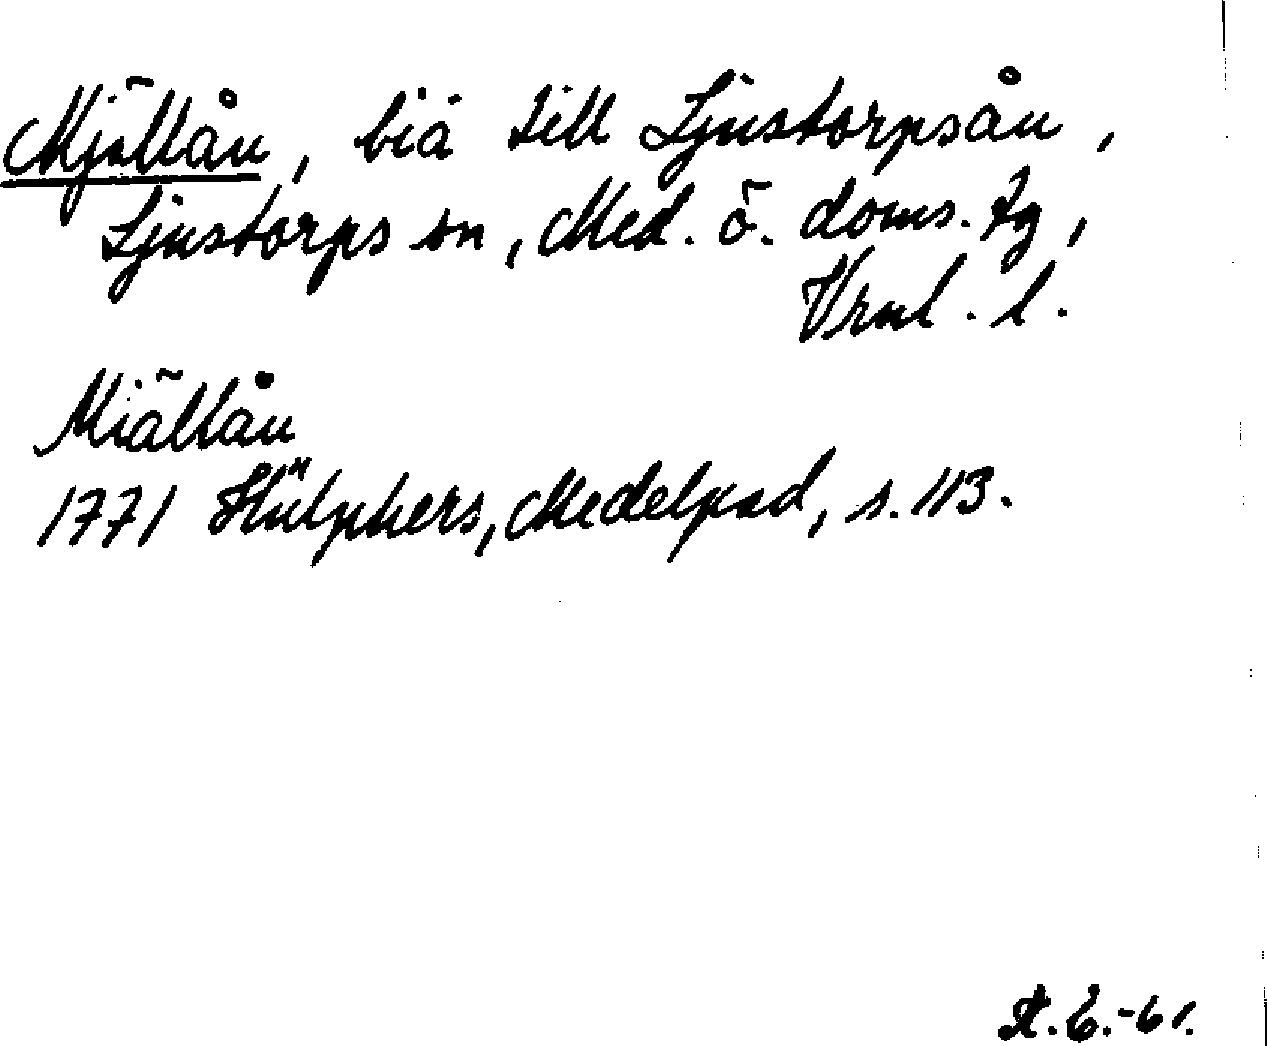 Mjällån, biå till Ljustorpsån,
Ljustorps sn, Med. ö. doms. tg,
Vrnl. l.
Miällån
1771 Hülphers, Medelpad, s. 113.
A.E.-61.